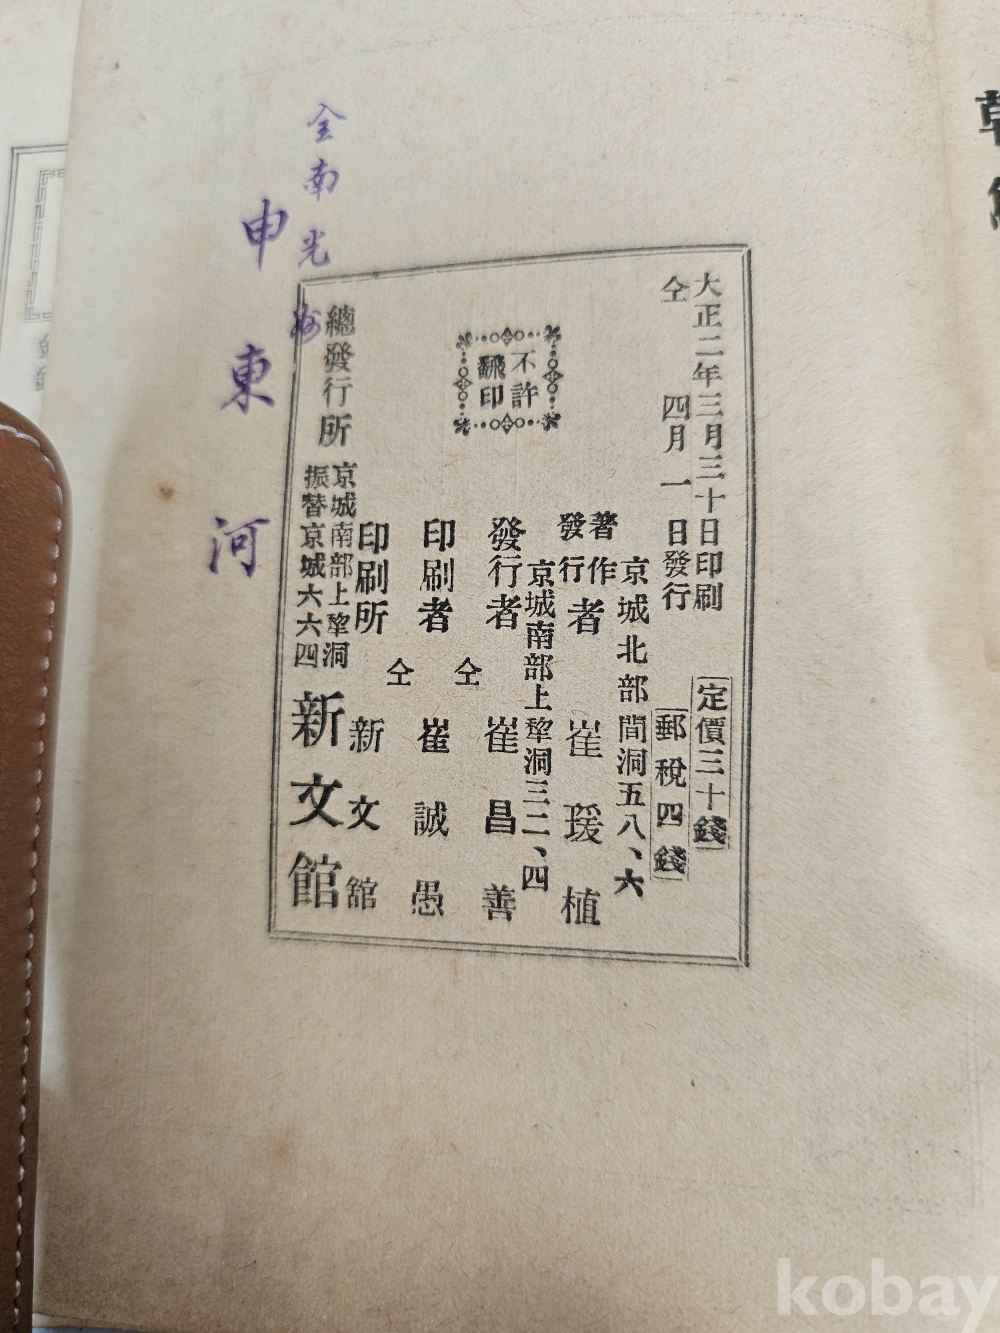 大正二年三月三十日印刷
仝 四月一日發行
定價三十錢
郵稅四錢
不許
飜印
京城北部間洞五八、六
著作
發行者 崔瑗植
京城南部上犂洞三二、四
發行者 崔昌善
仝
印刷者 崔誠愚
仝
印刷所 新文館
總發行所
京城南部上犂洞
振替京城六六四
新文館
全南光州
申東河
kobay